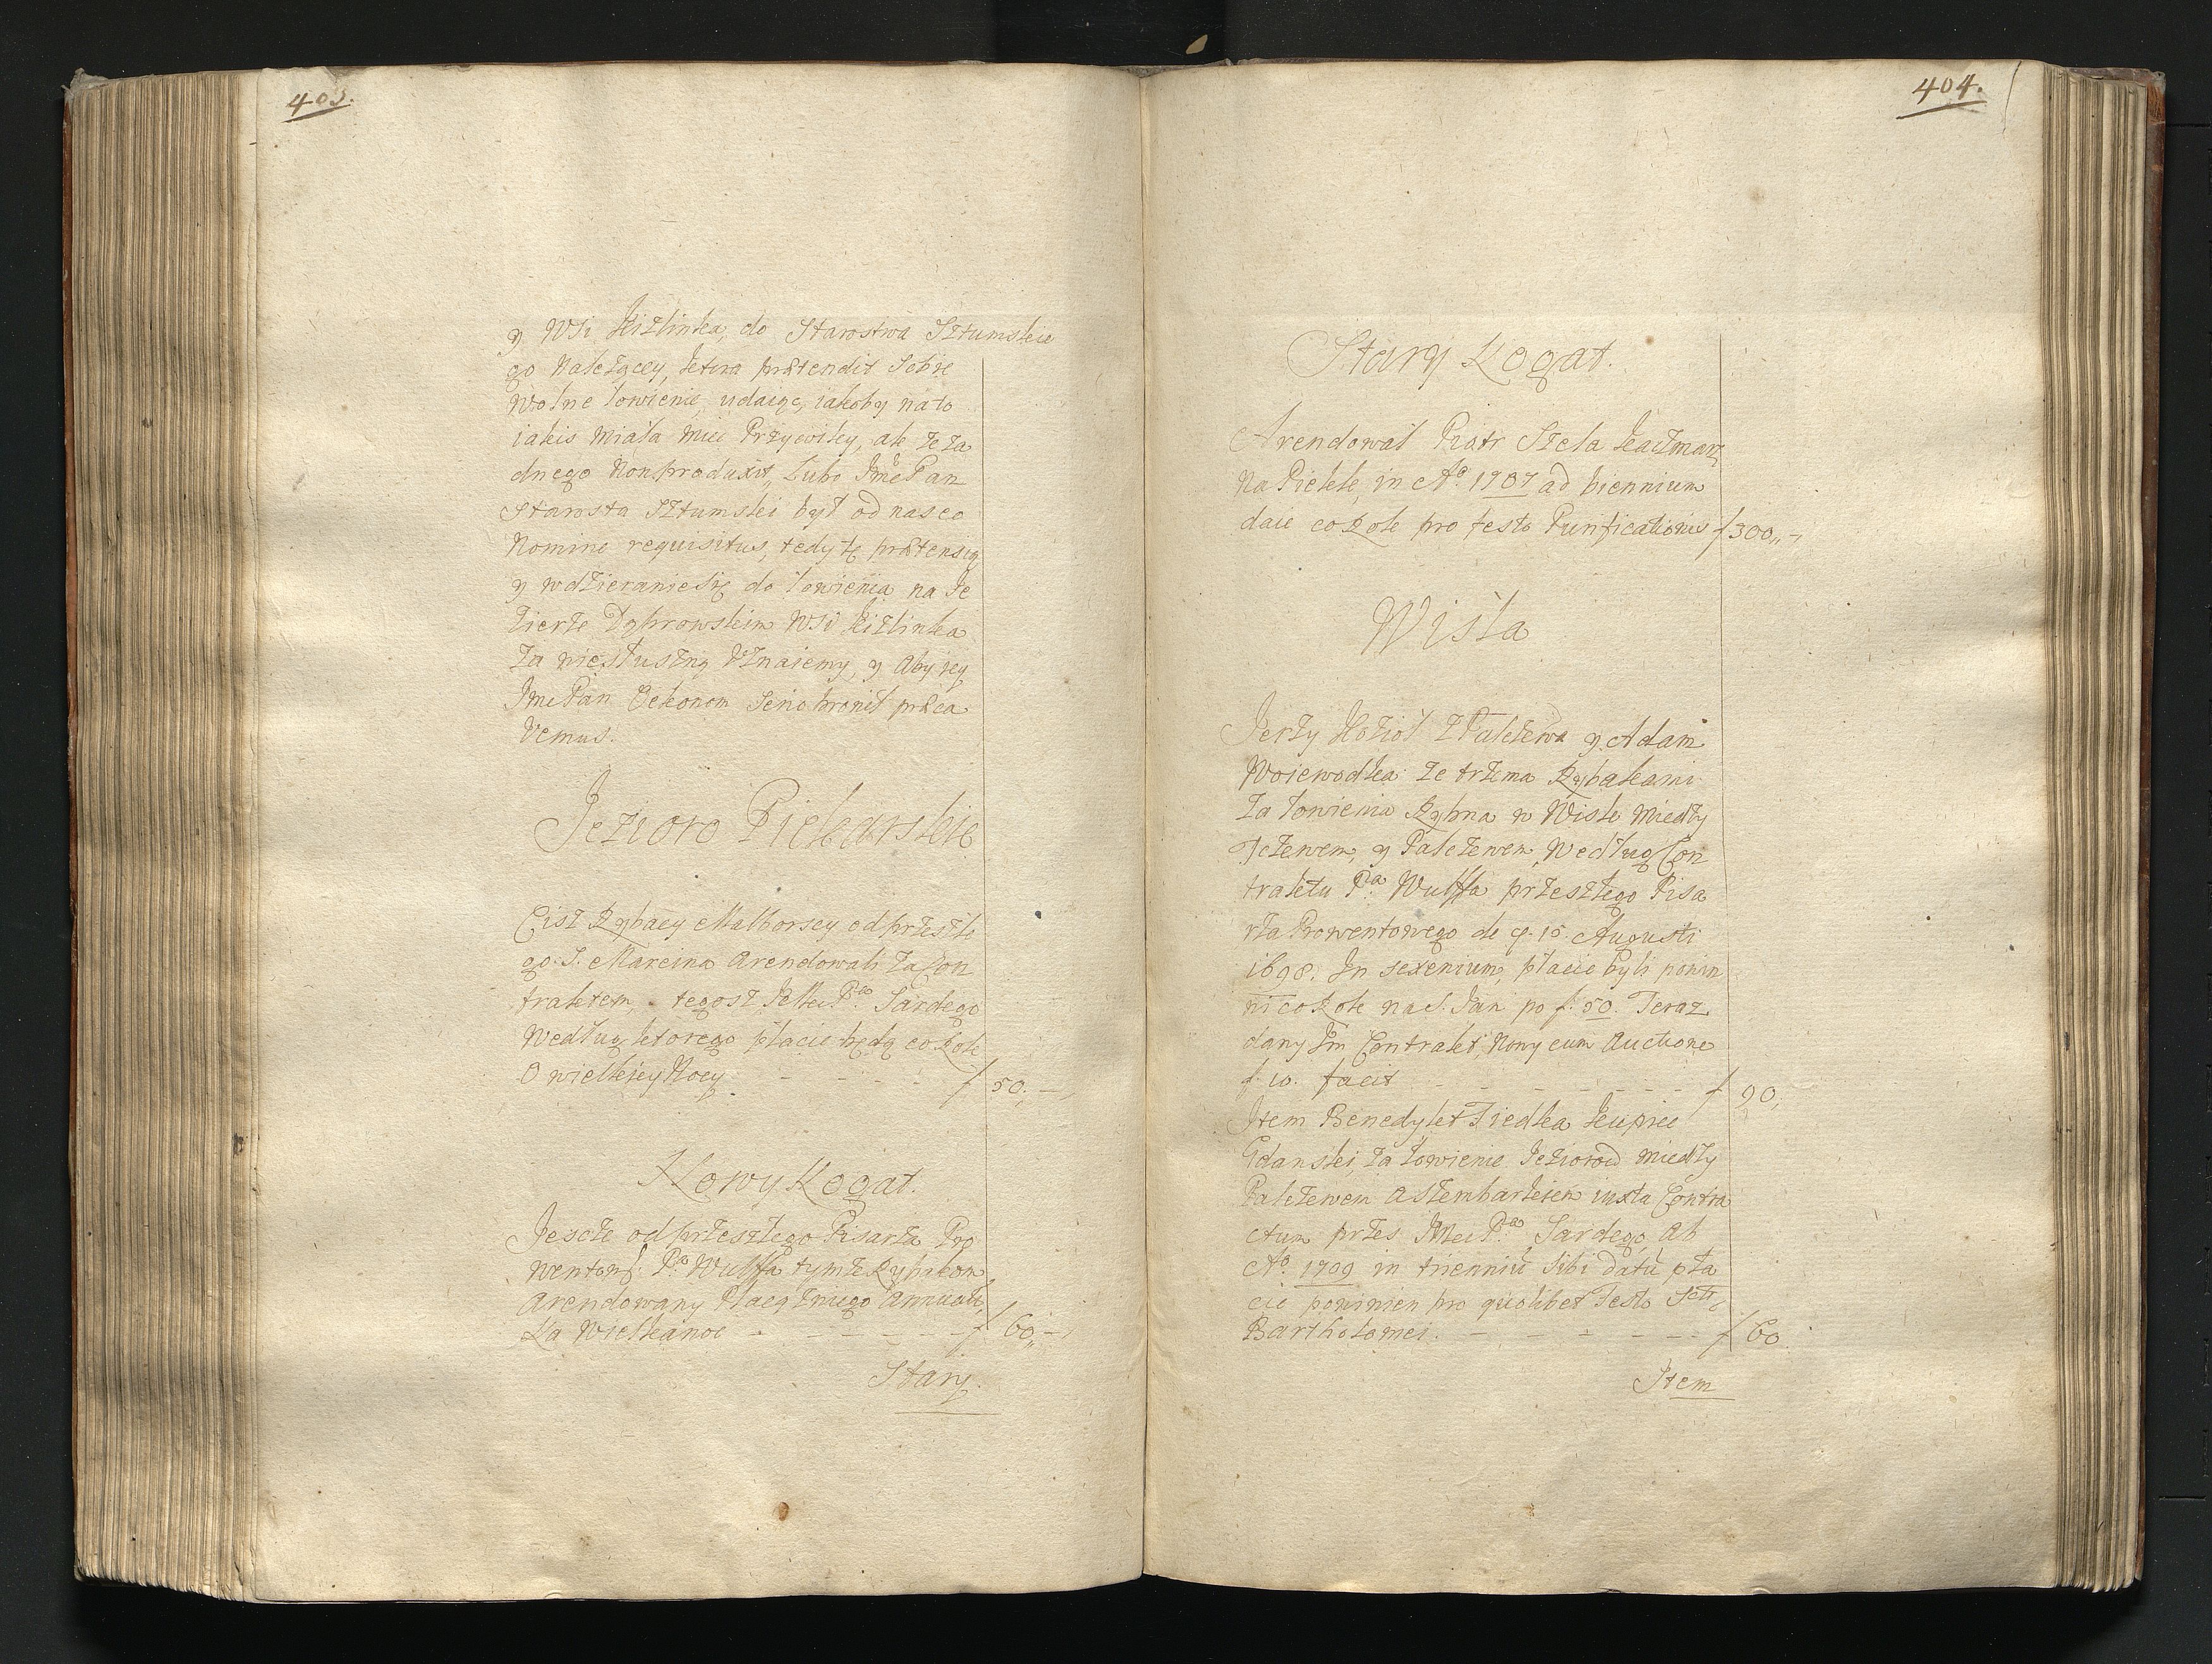 403.
y Wsi Kizlinka, do Starostwa Sztumskie
go Należącey, ktora prætendit Sobie
Wolne łowienie, udaiąc, iakoby na to
iakis Miała Miec Przywiley, ale że ża
dnego Non produxit, Lubo Jmc Pan
Starosta Sztumski był od nas eo
Nomine requisitus, tedy tę prætensią
y wdzieranie się do łowienia na Je
zierze Dąbrowskim Wsi Kizlinka
Za niesłuszną Uznaiemy, y Aby iey
Jmc Pan Oekonom Seino bronił præca
Vemus.
Jezioro Piekarskie
Cisz Rybacy Malborscy od przeszłe
go S. Marcina Arendowali Za Con
traktem, tegosz JeMci Pa Sardego
Według ktorego płacic będą co Rok
O wielkiey Nocy - - - - f 50,, -
Nowy Nogat.
Jescze od przeszłego Pisarza Pro
wentow. Pa Wulffa tymże Rybakom
Arendowany Płacą Zniego Annuati
Na Wielkanoc - - - - - f 60,, -
Stary.
404.
Stary Nogat.
Arendował Piotr Szela Kaczmarz
Na Piekle in Ao. 1707 ad biennium
daie co Rok pro festo Purificationis f 300,, -
Wisła
Jerzy Kozioł Z Palczewa y Adam
Woiewodka ze trzema Rybakami
Za łowienia Rybna w Wisle Miedzy
Tczewem, y Palczewem, Według Con
traktu Pa. Wulffa przeszłego Pisa
rza Prowentowego de 15 Augusti
1698. In sexenium, płacic byli powin
ni co Rok na S. Jan po f. 50. Teraz
dany Im Contrakt, Nowy cum Auctione
f. 10. facit - - - - - - f 90,
Item Benedykt Tiedka Kupiec
Gdanski, Za łowienie Jeziorod Miedzy
Palczewem A Szenbarkiem iuxta Contra
ctum przes JMci Pa. Sardego, Ab
Ao. 1709 in trienniū Sibi datū pła
cic powinien pro quolibet Festo Scti.
Bartholomei. - - - - - - f 60
Item